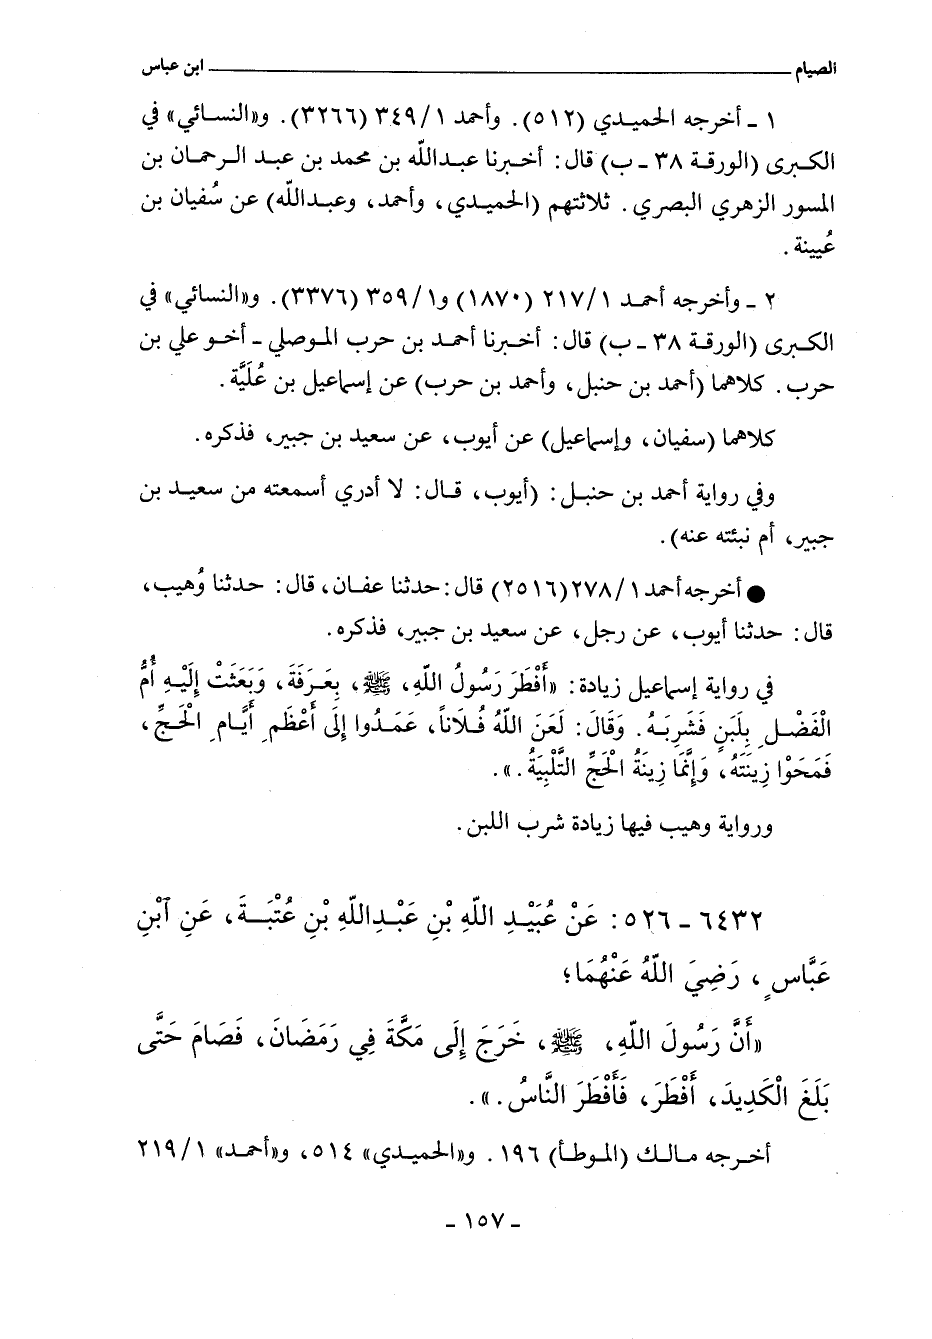 الصيام ــــــ ابن عباس
١ ـ أخرجه الحميدي (٥١٢). وأحمد ٣٤٩/١ (٣٢٦٦). و«النسائي» في
الكبرى (الورقة ٣٨ ـ ب) قال: أخبرنا عبدالله بن محمد بن عبد الرحمان بن
المسور الزهري البصري. ثلاثتهم (الحميدي، وأحمد، وعبدالله) عن سُفيان بن
عُيينة.
٢ ـ وأخرجه أحمد ٢١٧/١ (١٨٧٠) و٣٥٩/١ (٣٣٧٦). و«النسائي» في
الكبرى (الورقة ٣٨ ـ ب) قال: أخبرنا أحمد بن حرب الموصلي ـ أخو علي بن
حرب. كلاهما (أحمد بن حنبل، وأحمد بن حرب) عن إسماعيل بن عُلَيَّة.
كلاهما (سفيان، وإسماعيل) عن أيوب، عن سعيد بن جبير، فذكره.
وفي رواية أحمد بن حنبل: (أيوب، قال: لا أدري أسمعته من سعيد بن
جبير، أم نبئته عنه).
● أخرجه أحمد ٢٧٨/١ (٢٥١٦) قال: حدثنا عفان، قال: حدثنا وُهيب،
قال: حدثنا أيوب، عن رجل، عن سعيد بن جبير، فذكره.
في رواية إسماعيل زيادة: «أَفْطَرَ رَسُولُ اللهِ، ﷺ، بِعَرَفَةَ، وَبَعَثَتْ إِلَيْهِ أُمُّ
الْفَضْلِ بِلَبَنٍ فَشَرِبَهُ. وَقَالَ: لَعَنَ اللهُ فُلَاناً، عَمَدُوا إِلَى أَعْظَمِ أَيَّامِ الْحَجِّ،
فَمَحَوْا زِينَتَهُ، وَإِنَّمَا زِينَةُ الْحَجِّ التَّلْبِيَةُ.».
ورواية وهيب فيها زيادة شرب اللبن.
٦٤٣٢ ـ ٥٢٦: عَنْ عُبَيْدِ اللهِ بْنِ عَبْدِاللهِ بْنِ عُتْبَةَ، عَنِ آبْنِ
عَبَّاسٍ، رَضِيَ اللهُ عَنْهُمَا؛
«أَنَّ رَسُولَ اللهِ، ﷺ، خَرَجَ إِلَى مَكَّةَ فِي رَمَضَانَ، فَصَامَ حَتَّى
بَلَغَ الْكَدِيدَ، أَفْطَرَ، فَأَفْطَرَ النَّاسُ.».
أخرجه مالك (الموطأ) ١٩٦. و«الحميدي» ٥١٤، و«أحمد» ٢١٩/١
ـ ١٥٧ ـ